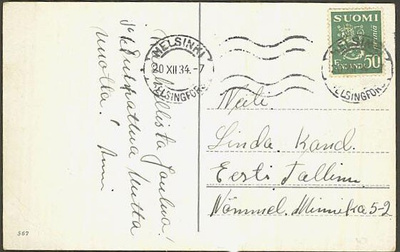 Joulua!
Uutta
vuotta!
HELSINKI
20 XII 34.-7
HELSINGFORS
SUOMI
FINLAND 50
HELSINKI
HELSINGFORS
Neiti
Linda Kand.
Eesti Tallinn
Nõmmel. Männiku 5-2
567